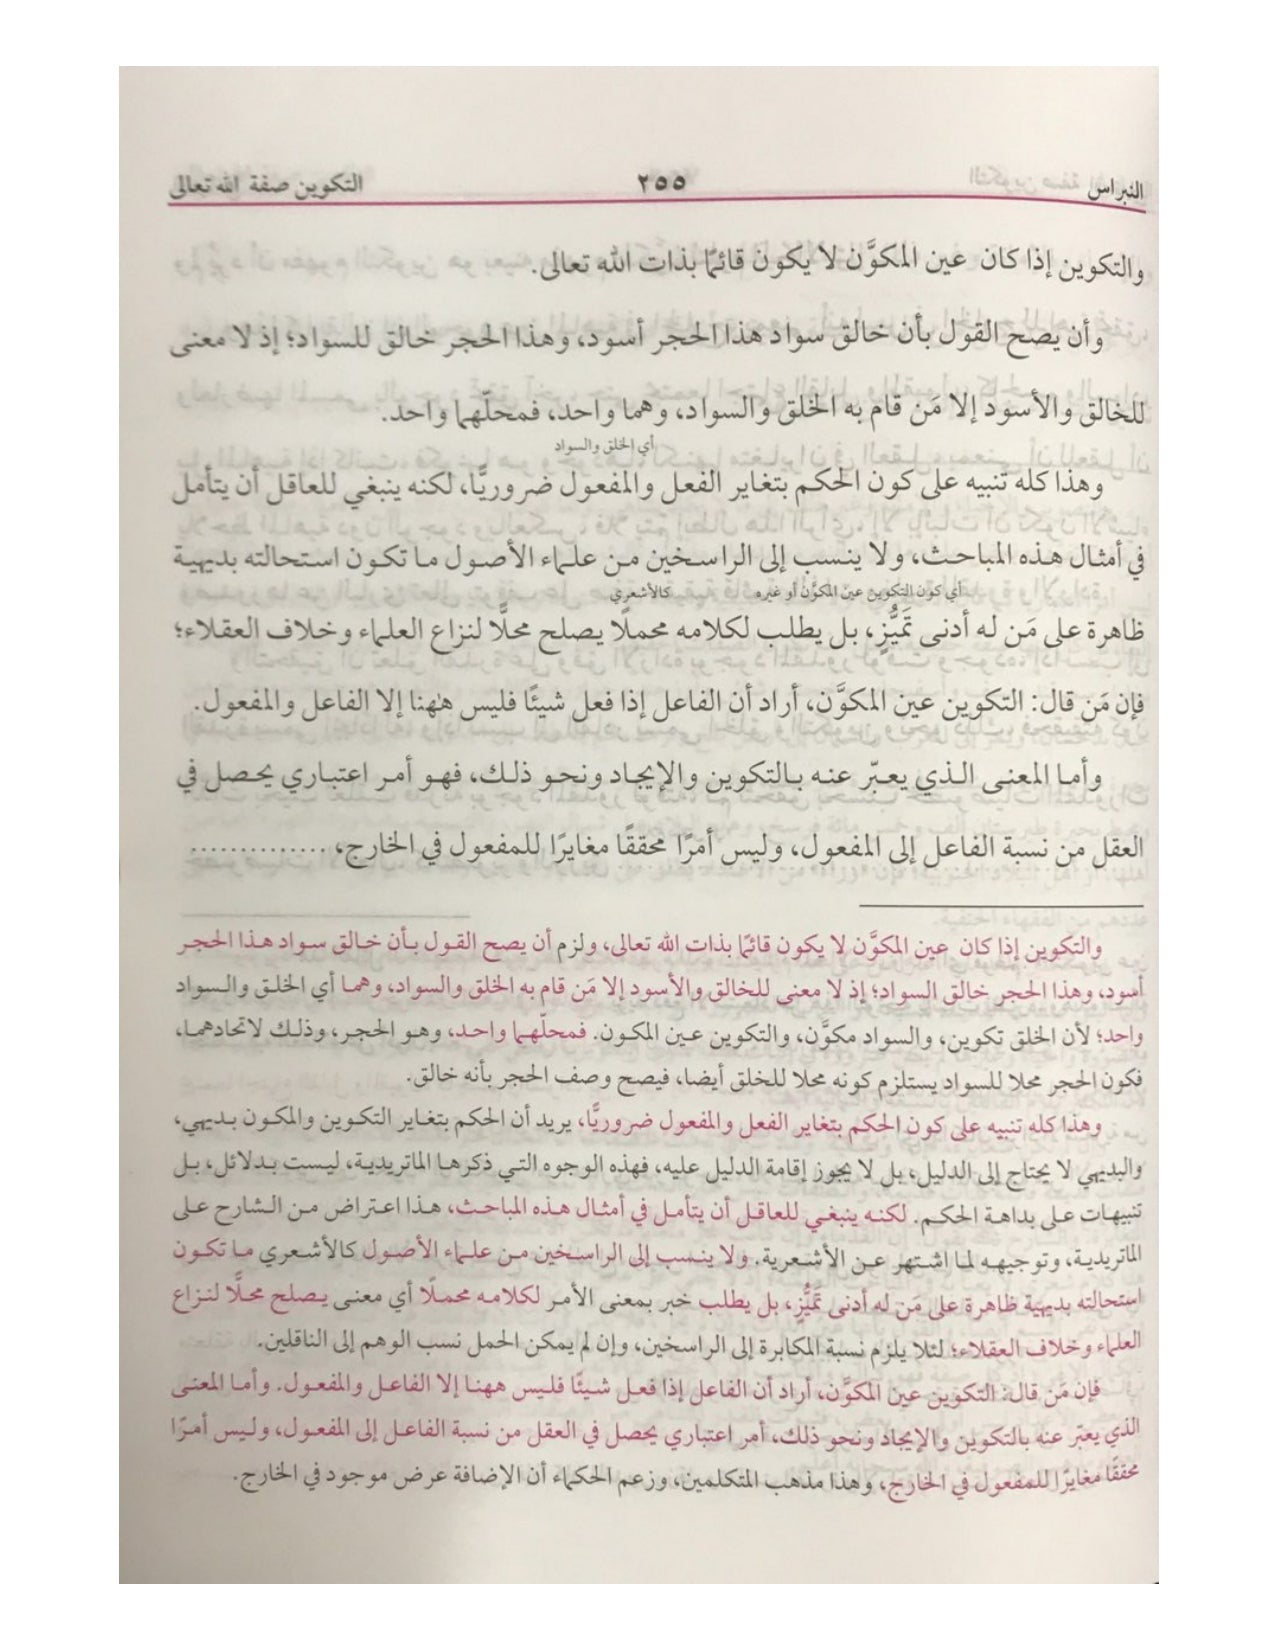 النبراس ٢٥٥ التكوين صفة الله تعالى
والتكوين إذا كان عين المكوَّن لا يكون قائمًا بذات الله تعالى.
وأن يصح القول بأن خالق سواد هذا الحجر أسود، وهذا الحجر خالق للسواد؛ إذ لا معنى
للخالق والأسود إلا مَن قام به الخلق والسواد، وهما واحد، فمحلّهما واحد.
أي الخلق والسواد
وهذا كله تنبيه على كون الحكم بتغاير الفعل والمفعول ضروريًّا، لكنه ينبغي للعاقل أن يتأمل
في أمثال هذه المباحث، ولا ينسب إلى الراسخين من علماء الأصول ما تكون استحالته بديهية
أي كون التكوين عين المكوَّن أو غيره كالأشعري
ظاهرة على مَن له أدنى تَميُّزٍ، بل يطلب لكلامه محملًا يصلح محلًّا لنزاع العلماء وخلاف العقلاء؛
فإن مَن قال: التكوين عين المكوَّن، أراد أن الفاعل إذا فعل شيئًا فليس ههنا إلا الفاعل والمفعول.
وأما المعنى الذي يعبّر عنه بالتكوين والإيجاد ونحو ذلك، فهو أمر اعتباري يحصل في
العقل من نسبة الفاعل إلى المفعول، وليس أمرًا محققًا مغايرًا للمفعول في الخارج، ..............
والتكوين إذا كان عين المكوَّن لا يكون قائمًا بذات الله تعالى، ولزم أن يصح القول بأن خالق سواد هذا الحجر
أسود، وهذا الحجر خالق السواد؛ إذ لا معنى للخالق والأسود إلا مَن قام به الخلق والسواد، وهما أي الخلق والسواد
واحد؛ لأن الخلق تكوين، والسواد مكوَّن، والتكوين عين المكون. فمحلّهما واحد، وهو الحجر، وذلك لاتحادهما،
فكون الحجر محلا للسواد يستلزم كونه محلا للخلق أيضا، فيصح وصف الحجر بأنه خالق.
وهذا كله تنبيه على كون الحكم بتغاير الفعل والمفعول ضروريًّا، يريد أن الحكم بتغاير التكوين والمكون بديهي،
والبديهي لا يحتاج إلى الدليل، بل لا يجوز إقامة الدليل عليه، فهذه الوجوه التي ذكرها الماتريدية، ليست بدلائل، بل
تنبيهات على بداهة الحكم. لكنه ينبغي للعاقل أن يتأمل في أمثال هذه المباحث، هذا اعتراض من الشارح على
الماتريدية، وتوجيهه لما اشتهر عن الأشعرية. ولا ينسب إلى الراسخين من علماء الأصول كالأشعري ما تكون
استحالته بديهية ظاهرة على مَن له أدنى تَميُّزٍ، بل يطلب خبر بمعنى الأمر لكلامه محملًا أي معنى يصلح محلًّا لنزاع
العلماء وخلاف العقلاء؛ لئلا يلزم نسبة المكابرة إلى الراسخين، وإن لم يمكن الحمل نسب الوهم إلى الناقلين.
فإن مَن قال: التكوين عين المكوَّن، أراد أن الفاعل إذا فعل شيئًا فليس ههنا إلا الفاعل والمفعول. وأما المعنى
الذي يعبّر عنه بالتكوين والإيجاد ونحو ذلك، أمر اعتباري يحصل في العقل من نسبة الفاعل إلى المفعول، وليس أمرًا
محققًا مغايرًا للمفعول في الخارج، وهذا مذهب المتكلمين، وزعم الحكماء أن الإضافة عرض موجود في الخارج.